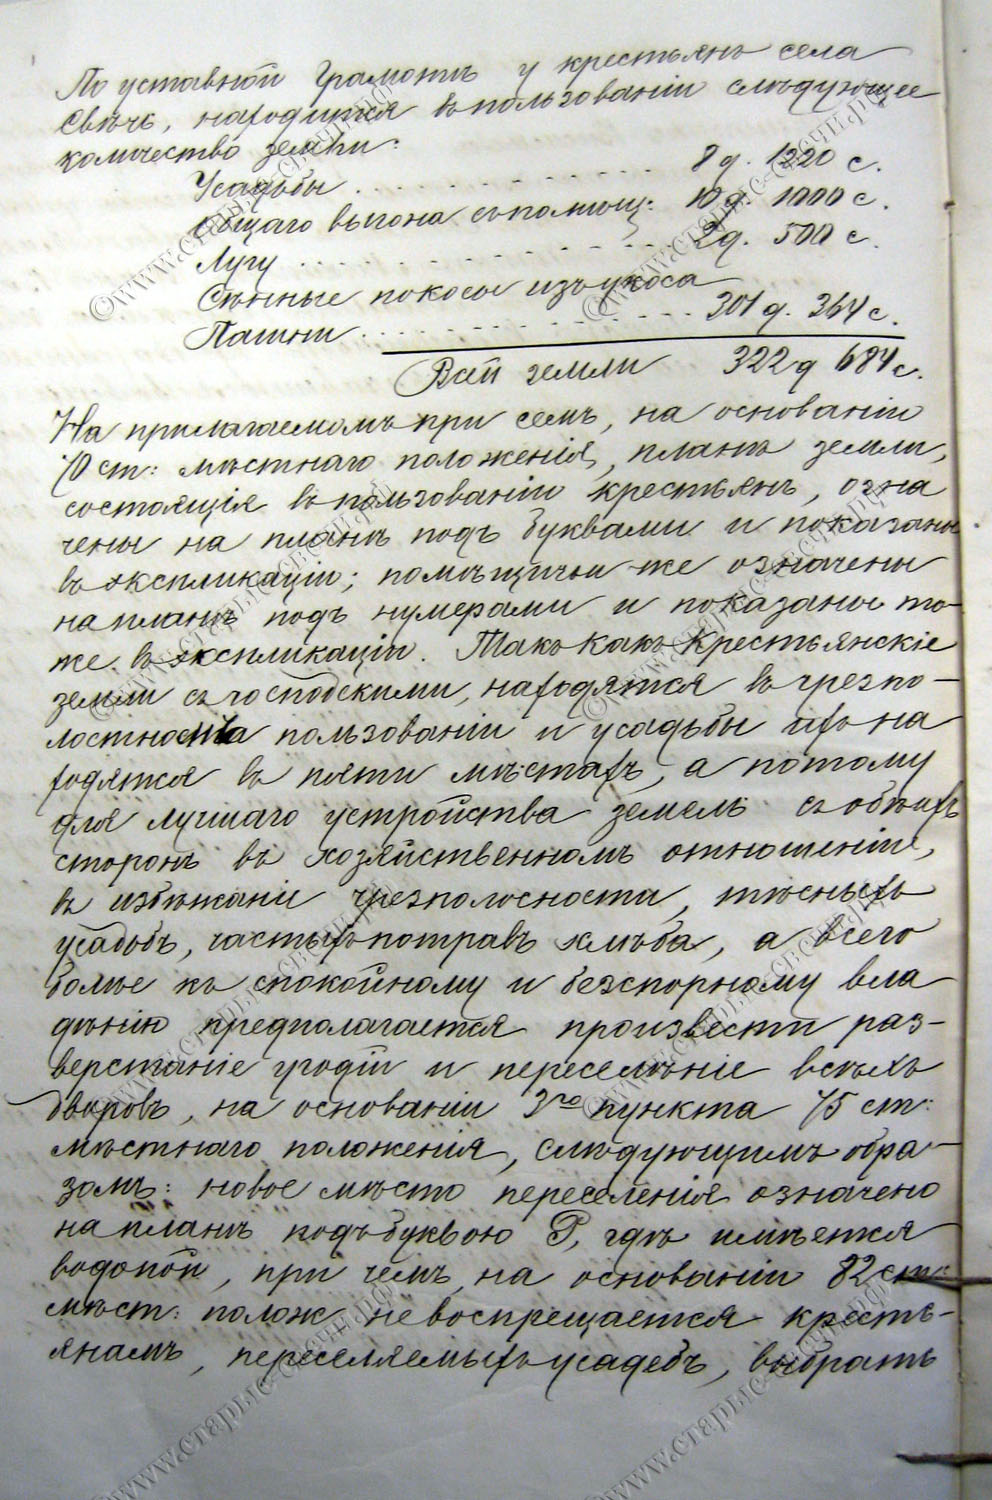 По уставной грамотѣ у крестьянъ села
Свѣчѣ, находится въ пользованіи слѣдующее
количество земли:
Усадьбы . . . . . . . . . . . 8 д. 1220 с.
Общаго выгона съ помѣщ: 10 д. 1000 с.
Лугу . . . . . . . . . . . . 2 д. 500 с.
Сѣнные покосы изъ укоса
Пашни . . . . . . . . . . . 301 д. 364 с.
Всей земли 322 д 684 с.
На прилагаемомъ при семъ, на основаніи
70 ст: мѣстнаго положенія, планѣ земли,
состоящія въ пользованіи крестьянъ, озна
чены на планѣ подъ буквами и показаны
въ экспликаціи; помѣщичьи же означены
на планѣ подъ нумерами и показаны то-
же въ экспликаціи. Такъ какъ крестьянскіе
земли съ господскими, находятся въ чрезпо-
лостномъ пользованіи и усадьбы ихъ на
ходятся въ пяти мѣстахъ, а потому
для лучшаго устройства земель съ обѣихъ
сторонъ въ хозяйственномъ отношеніи,
въ избѣжаніи чрезполосности, тѣсныхъ
усадьбъ, частыхъ потравъ хлѣба, а всего
болѣе къ спокойному и безспорному вла
дѣнію предполагается произвести раз-
верстаніе угодій и переселѣніе всѣхъ
дворовъ, на основаніи 3го пункта 75 ст:
мѣстнаго положенія, слѣдующимъ обра-
зомъ: новое мѣсто переселенія означено
на планѣ подъ буквою Р, гдѣ имѣется
водопой, при чемъ на основаніи 82 ст:
мѣст: полож не воспрещается кресть-
янамъ, переселяемыхъ усадебъ, выбрать
©www.старые-свечи.рф